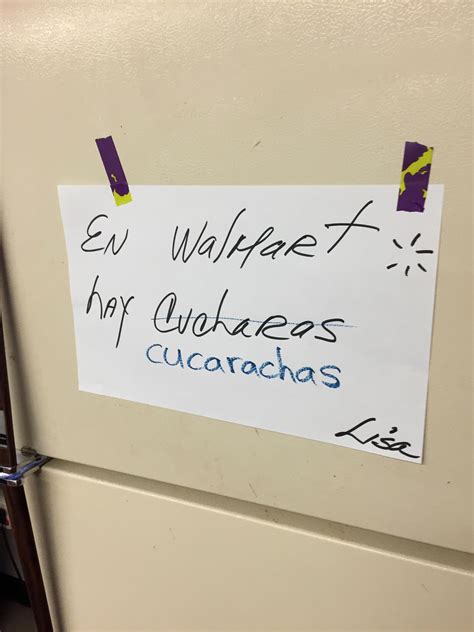 EN WalMart
hay Cucharas
cucarachas
Lisa